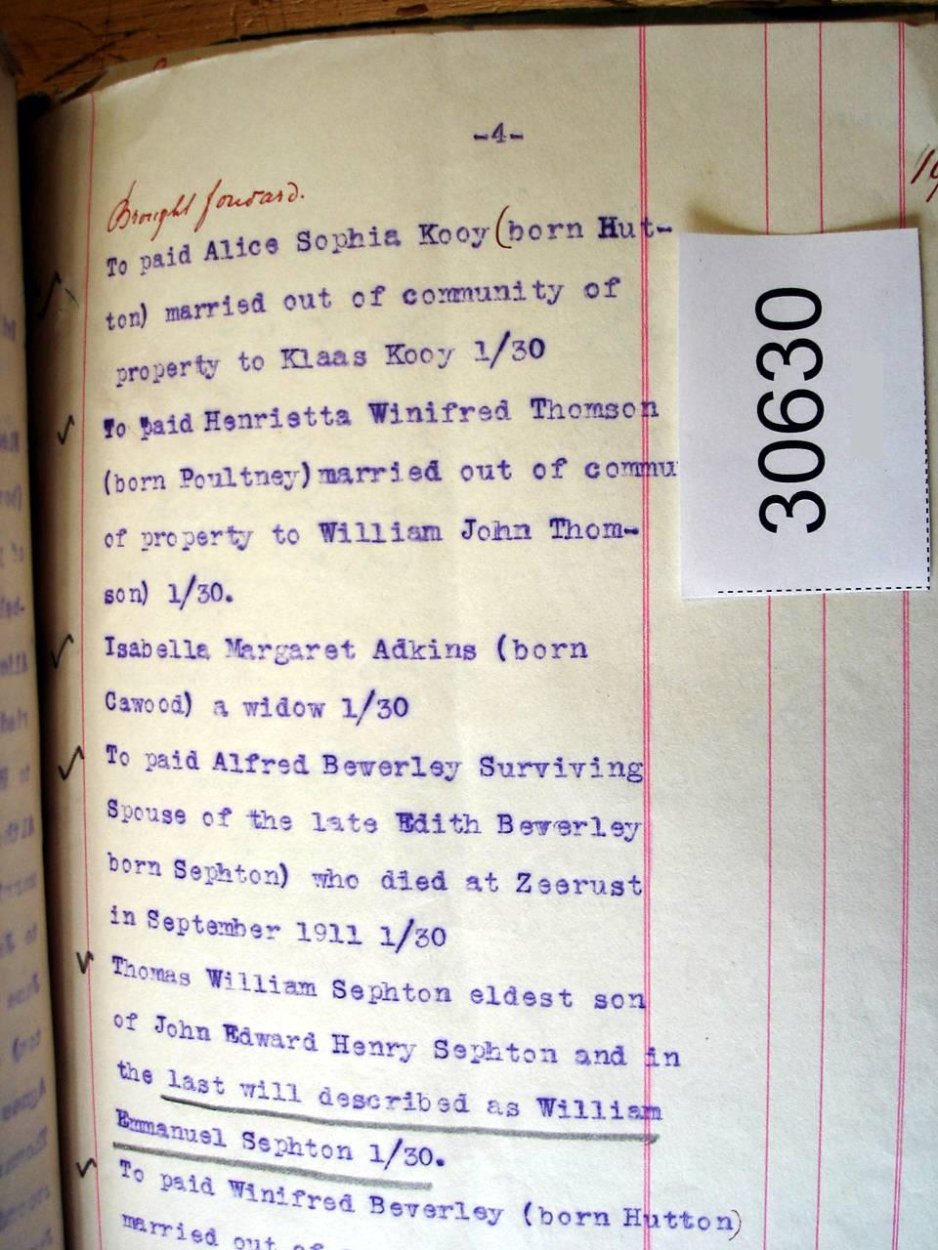 -4-
Brought forward.
To paid Alice Sophia Kooy (born Hut-
ton) married out of community of
property to Klaas Kooy 1/30
To paid Henrietta Winifred Thomson
(born Poultney) married out of commu
of property to William John Thom-
son) 1/30.
Isabella Margaret Adkins (born
Cawood) a widow 1/30
To paid Alfred Bewerley Surviving
Spouse of the late Edith Bewerley
born Sephton) who died at Zeerust
in September 1911 1/30
Thomas William Sephton eldest son
of John Edward Henry Sephton and in
the last will described as William
Emmanuel Sephton 1/30.
To paid Winifred Beverley (born Hutton)
married out of
30630